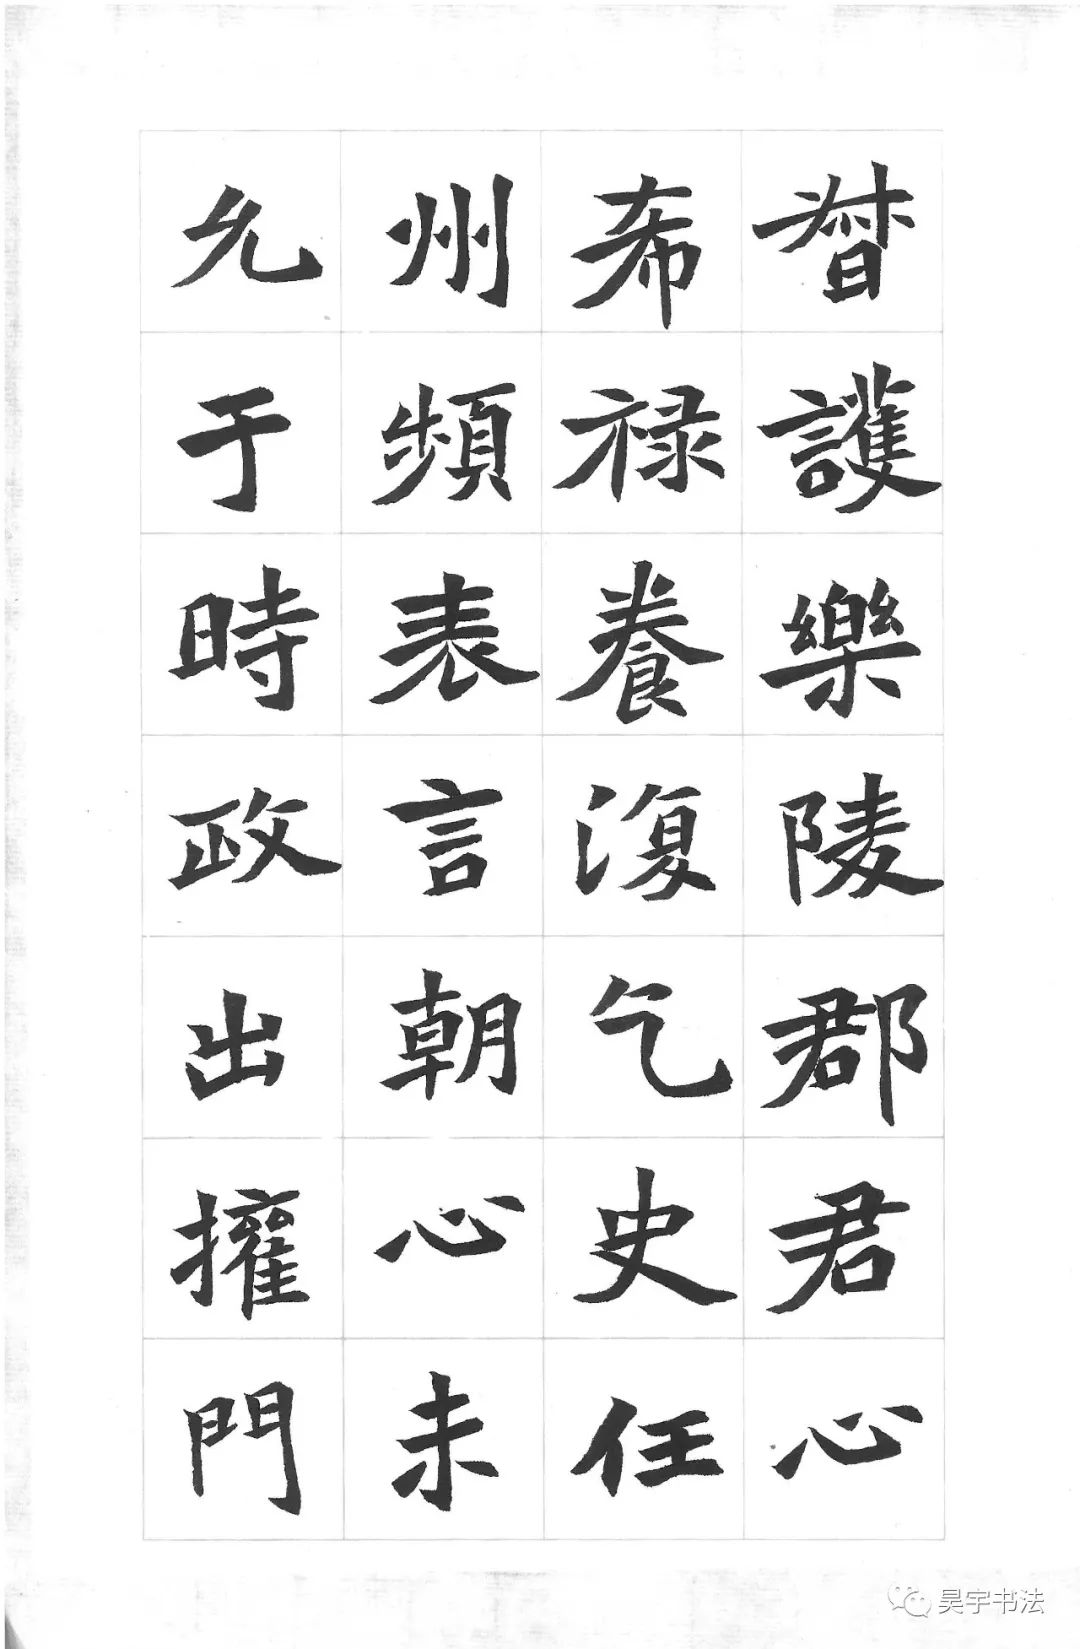 督護樂陵郡君心
希禄養復乞史任
州頻表言朝心未
允于時政出權門
昊宇书法